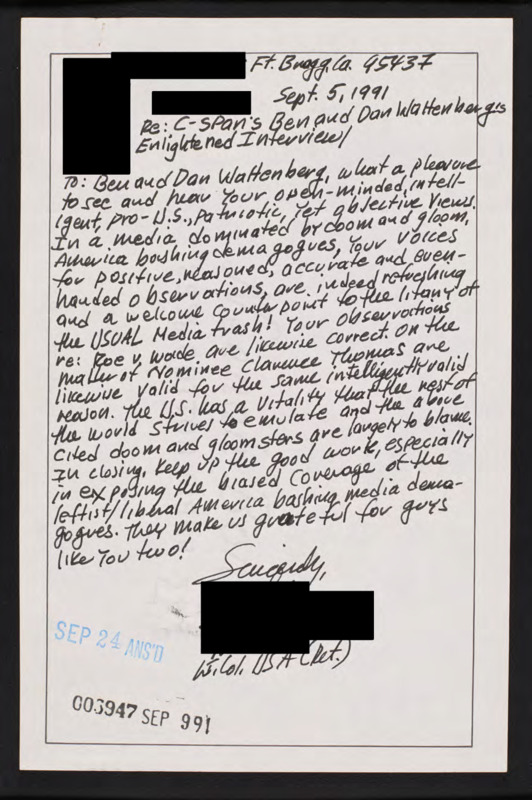 Ft. Bragg, Ca. 95437
Sept. 5, 1991
Re: C-SPAN's Ben and Dan Wattenberg's
Enlightened Interview/
To: Ben and Dan Wattenberg, what a pleasure
to see and hear your open-minded, intell-
igent, pro-U.S., patriotic, yet objective views.
In a media dominated by doom and gloom,
America bashing demagogues, your voices
for positive, reasoned, accurate and even-
handed observations, are indeed refreshing
and a welcome counterpoint to the litany of
the USUAL Media trash! Your observations
re: Roe v. Wade are likewise correct. On the
matter of Nominee Clarence Thomas are
likewise valid for the same intelligently valid
reason. The U.S. has a vitality that the rest of
the world strives to emulate and the above
cited doom and gloomsters are largely to blame.
In closing, keep up the good work, especially
in exposing the biased coverage of the
leftist/liberal America bashing media dema-
gogues. They make us grateful for guys
like you two!
Sincerely,
USA (Ret.)
SEP 24 ANS'D
003947 SEP 991